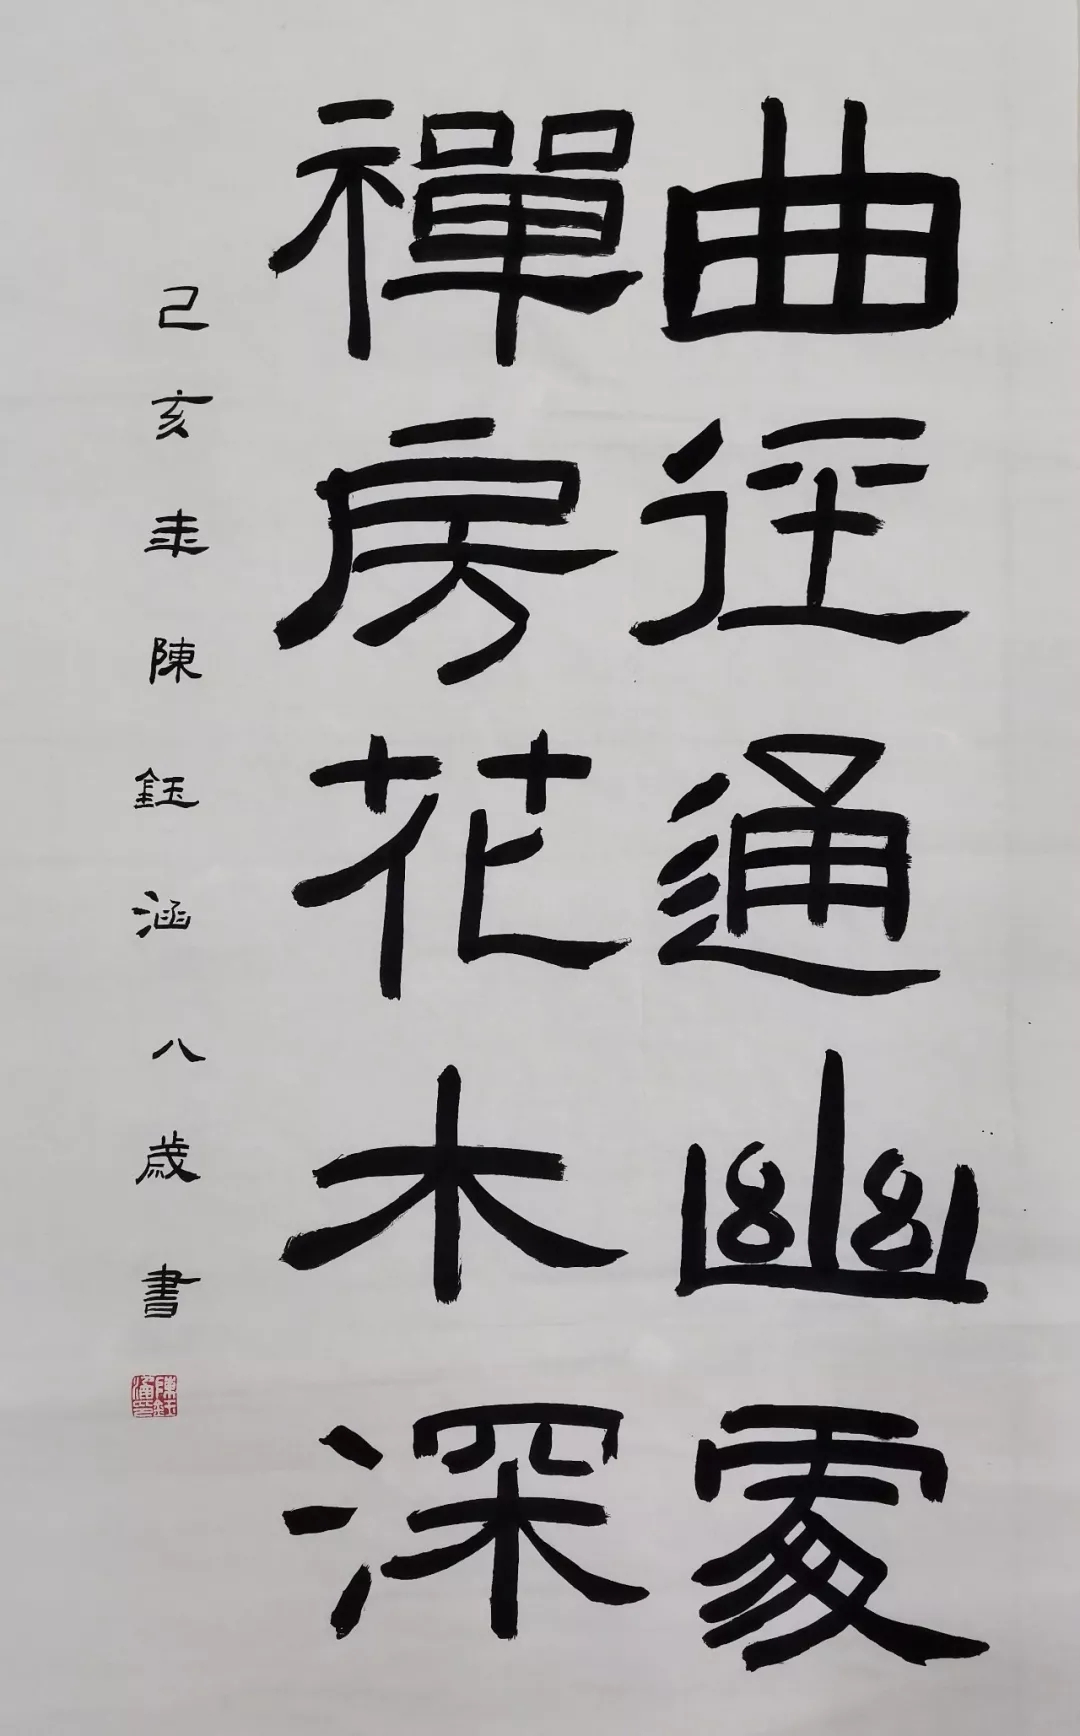 曲径通幽處
禪房花木深
己亥年陳鈺涵八歲書
陳鈺涵印